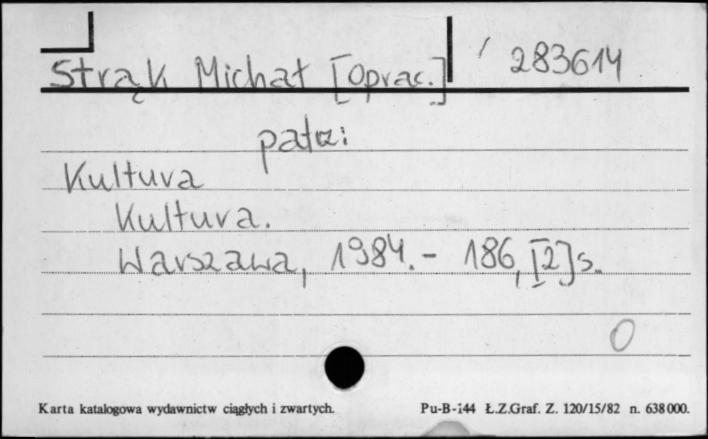 Strąk Michał [oprac.] 283614
patrz:
Kultura
Kultura.
Warszawa, 1984. - 186, [2] s.
0
Karta katalogowa wydawnictw ciągłych i zwartych. Pu-B-144 Ł.Z.Graf. Z. 120/15/82 n. 638000.